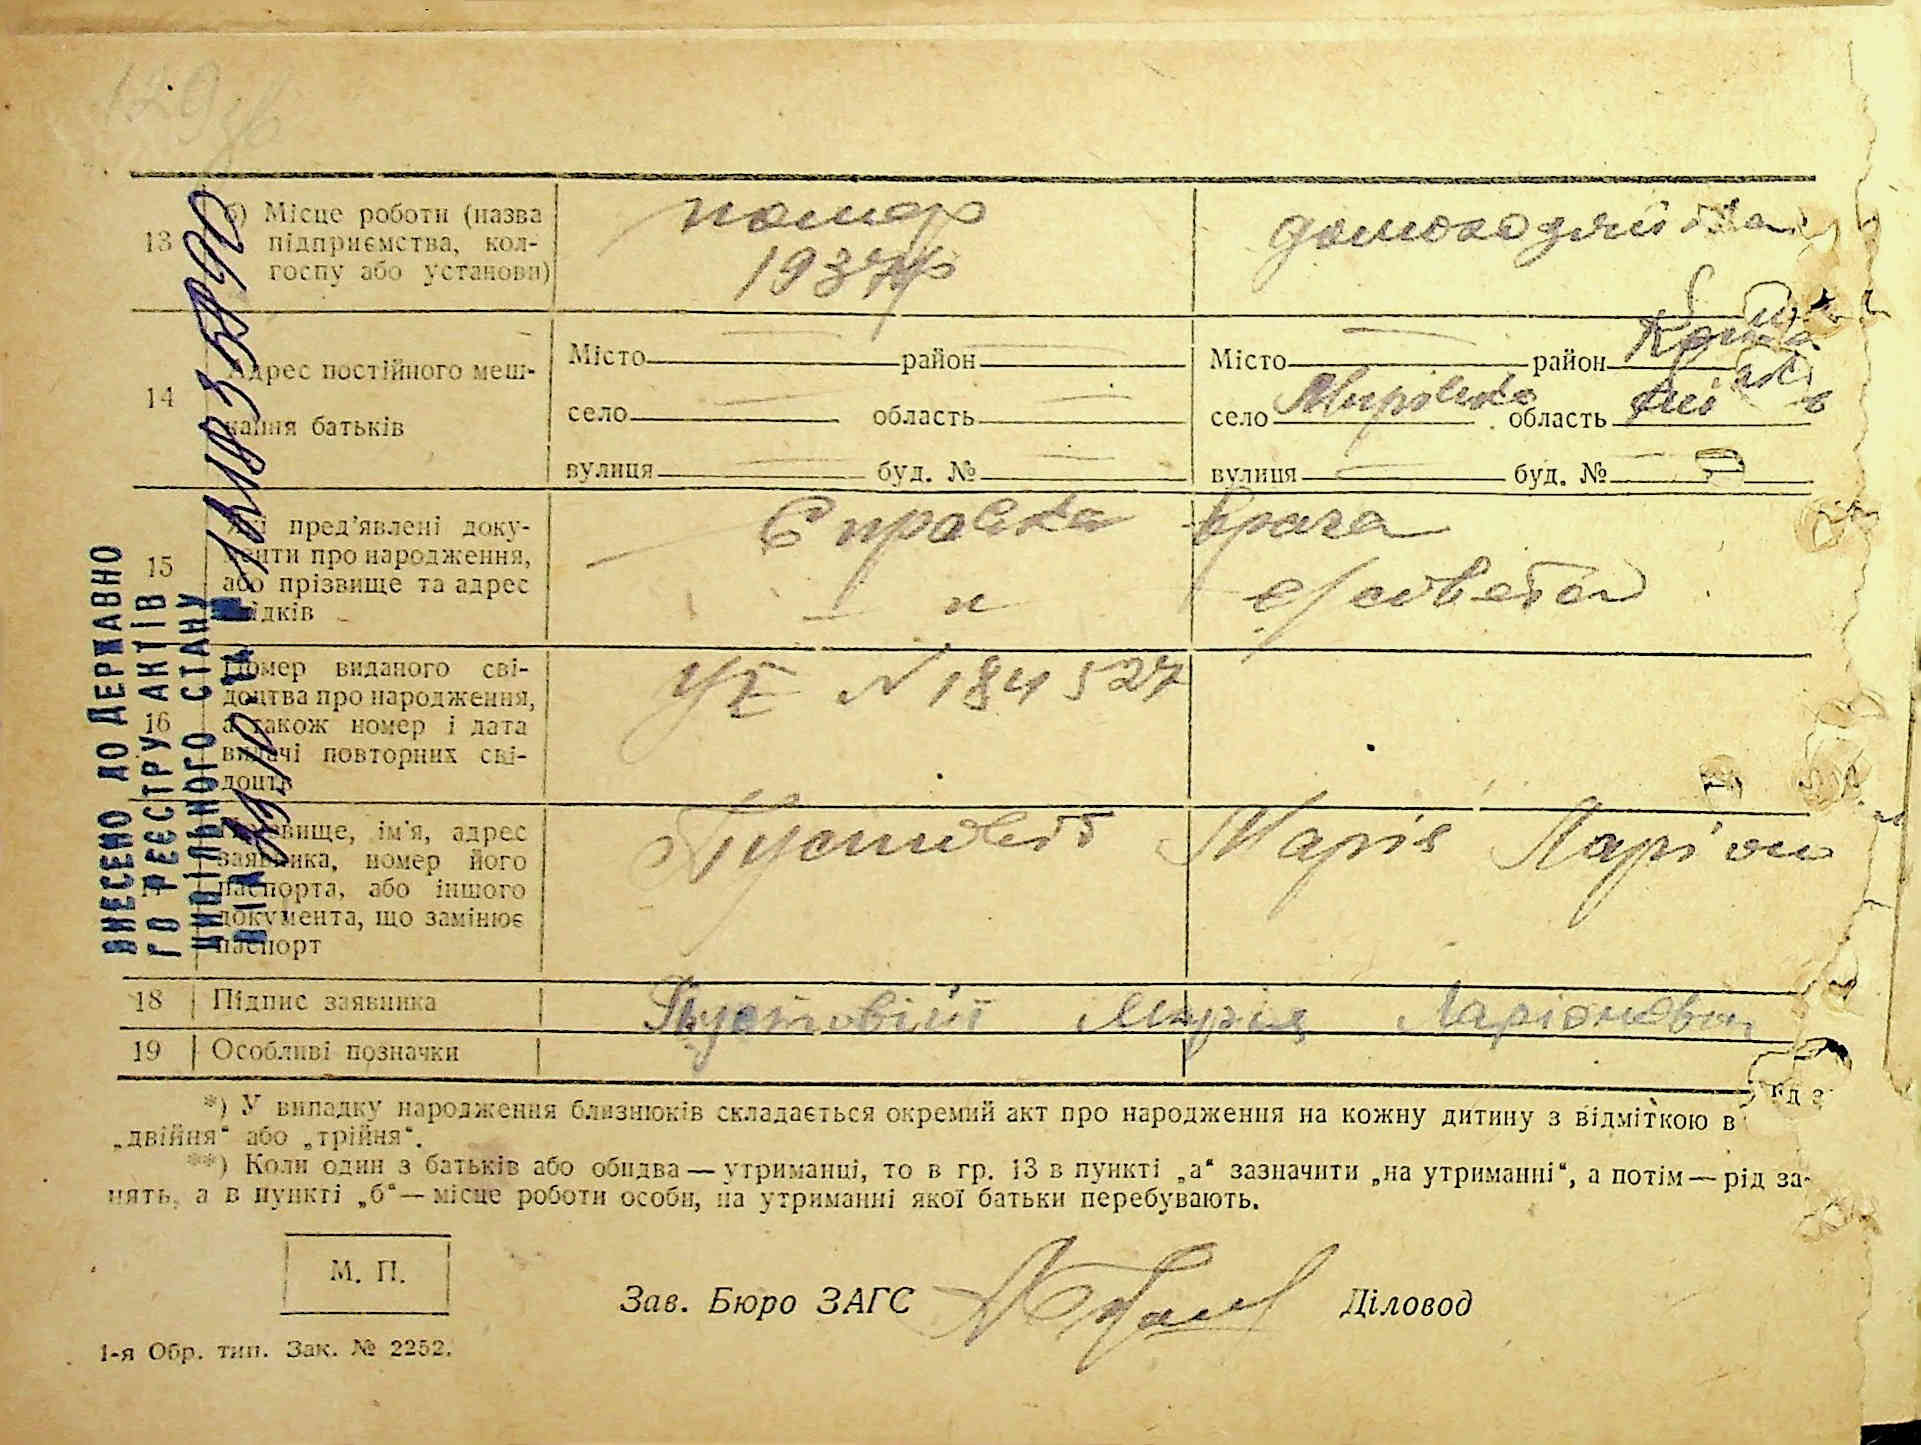 129 зв
13 б) Місце роботи (назва
підприємства, кол-
госпу або установи)
помер
1937 р
домохозяйка
14 Адрес постійного меш-
кання батьків
Місто район
село область
вулиця буд. №
Місто район
село Мирівка область
вулиця буд. №
15 Які пред'явлені доку-
менти про народження,
або прізвище та адрес
свідків
Справка врача
— " с/совета
16 Номер виданого сві-
доцтва про народження,
а також номер і дата
видачі повторних сві-
доцтв
N 184527
17 Прізвище, ім'я, адрес
заявника, номер його
паспорта, або іншого
документа, що замінює
паспорт
Пустовіт Марія Ларіон
18 Підпис заявника
Пустовіт Марія Ларіоновна
19 Особливі позначки
*) У випадку народження близнюків складається окремий акт про народження на кожну дитину з відміткою в
„двійня“ або „трійня“.
**) Коли один з батьків або обидва — утриманці, то в гр. 13 в пункті „а“ зазначити „на утриманні“, а потім — рід за-
нять, а в пункті „б“ — місце роботи особи, на утриманні якої батьки перебувають.
М. П.
Зав. Бюро ЗАГС Діловод
1-я Обр. тип. Зак. № 2252.
ВНЕСЕНО ДО ДЕРЖАВНО
ГО РЕЄСТРУ АКТІВ
ЦИВІЛЬНОГО СТАНУ